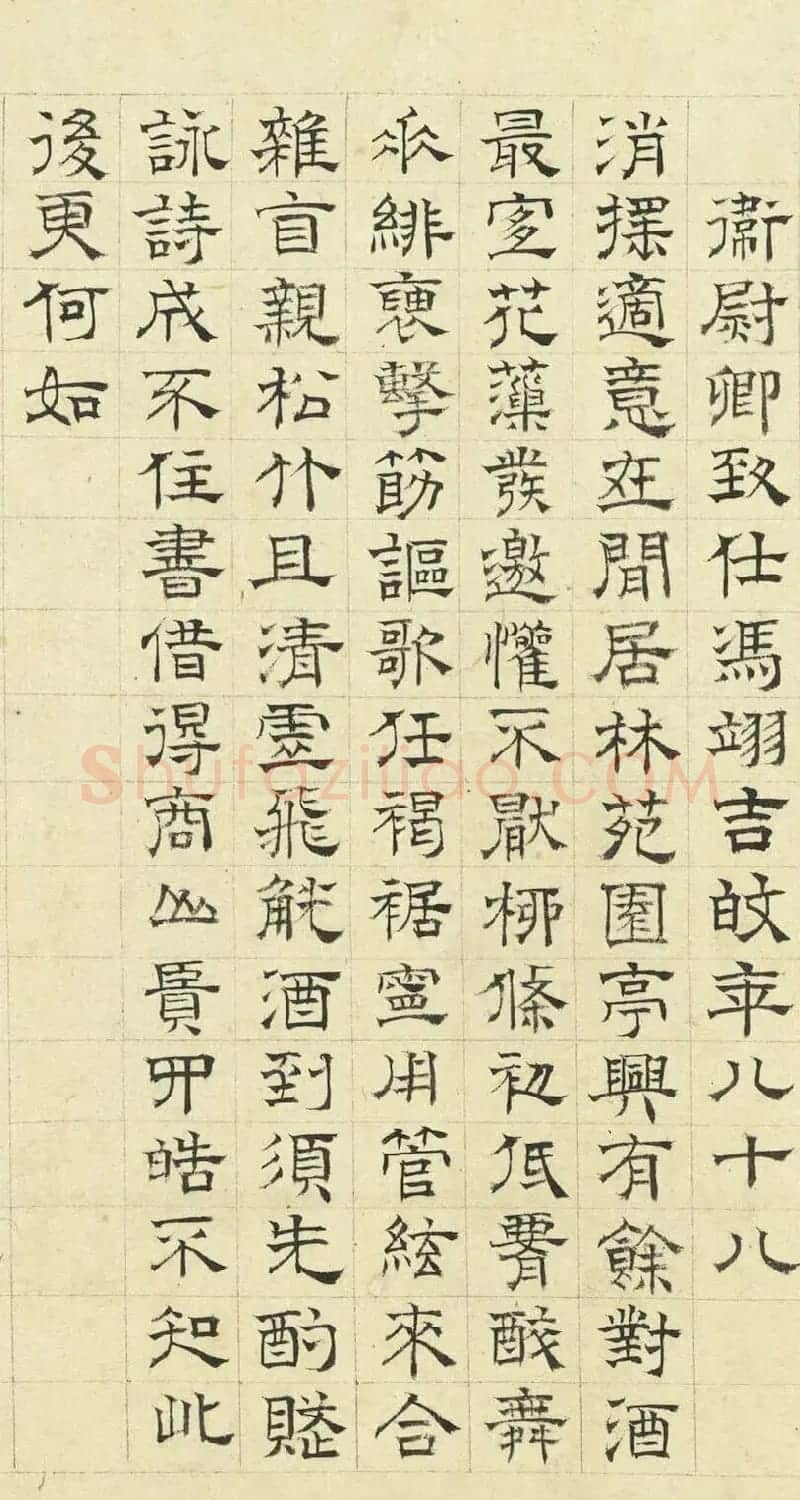 衛尉卿致仕馮翊吉皎年八十八
消搖適意在閒居林苑園亭興有餘對酒
最宜花藻發邀懽不厭柳條初低腰醉舞
垂緋褎擊筑謳歌任褐裾寧用管絃來合
雜自親松竹且清虛飛觥酒到須先酌賦
詠詩成不住書借得商山賢四皓不知此
後更何如
Shufaziliao.COM